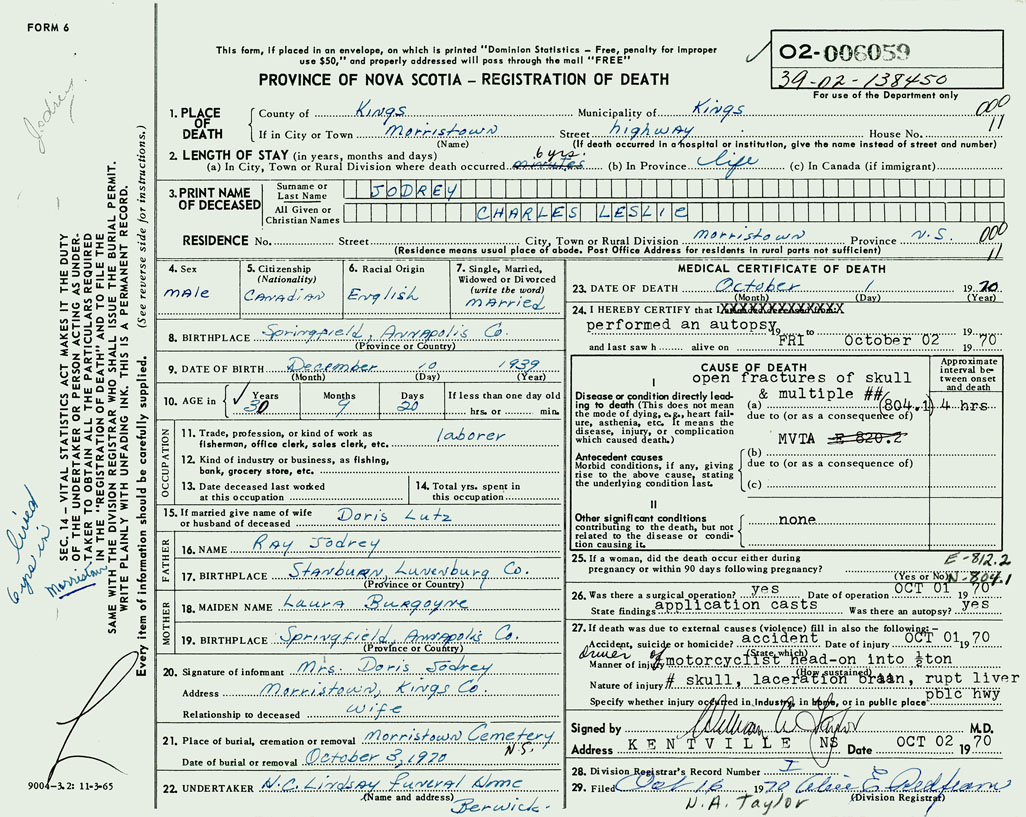 FORM 6
This form, if placed in an envelope, on which is printed "Dominion Statistics – Free, penalty for improper
use $50," and properly addressed will pass through the mail "FREE"
PROVINCE OF NOVA SCOTIA – REGISTRATION OF DEATH
02-006059
39-02-138450
For use of the Department only
Jodrey
1. PLACE OF DEATH
County of Kings Municipality of Kings 000
If in City or Town Morristown Street highway House No. 11
(Name) (If death occurred in a hospital or institution, give the name instead of street and number)
2. LENGTH OF STAY (in years, months and days) 6 yrs.
(a) In City, Town or Rural Division where death occurred minutes (b) In Province life (c) In Canada (if immigrant)
3. PRINT NAME OF DECEASED
Surname or Last Name JODREY
All Given or Christian Names CHARLES LESLIE
RESIDENCE No. Street City, Town or Rural Division Morristown Province N.S. 000
(Residence means usual place of abode. Post Office Address for residents in rural parts not sufficient) 11
4. Sex
male
5. Citizenship
(Nationality)
Canadian
6. Racial Origin
English
7. Single, Married,
Widowed or Divorced
(write the word)
married
8. BIRTHPLACE Springfield, Annapolis Co.
(Province or Country)
9. DATE OF BIRTH December 10 1939
(Month) (Day) (Year)
10. AGE in Years Months Days If less than one day old
30 9 20 hrs. or min.
OCCUPATION
11. Trade, profession, or kind of work as laborer
fisherman, office clerk, sales clerk, etc.
12. Kind of industry or business, as fishing,
bank, grocery store, etc.
13. Date deceased last worked
at this occupation
14. Total yrs. spent in
this occupation
15. If married give name of wife
or husband of deceased Doris Lutz
FATHER
16. NAME Ray Jodrey
17. BIRTHPLACE Stanburn, Lunenburg Co.
(Province or Country)
MOTHER
18. MAIDEN NAME Laura Burgoyne
19. BIRTHPLACE Springfield, Annapolis Co.
(Province or Country)
20. Signature of informant Mrs. Doris Jodrey
Address Morristown, Kings Co.
Relationship to deceased wife
21. Place of burial, cremation or removal Morristown Cemetery
N.S.
Date of burial or removal October 3, 1970
22. UNDERTAKER N.C. Lindsay Funeral Home
(Name and address) Berwick-
MEDICAL CERTIFICATE OF DEATH
23. DATE OF DEATH October 1 1970
(Month) (Day) (Year)
24. I HEREBY CERTIFY that I
performed an autopsy, 19 to 19
and last saw h alive on FRI October 02 1970
CAUSE OF DEATH
Approximate interval between onset and death
I open fractures of skull
Disease or condition directly leading & multiple ##
to death (This does not mean (a) (804.1) 4 hrs
the mode of dying, e.g., heart failure, due to (or as a consequence of)
asthenia, etc. It means the
disease, injury, or complication MVTA E 820.2
which caused death.)
Antecedent causes (b)
Morbid conditions, if any, giving due to (or as a consequence of)
rise to the above cause, stating
the underlying condition last. (c)
II
Other significant conditions none
contributing to the death, but not
related to the disease or condition
causing it.
25. If a woman, did the death occur either during E-812.2
pregnancy or within 90 days following pregnancy?
(Yes or No) N-804.1
26. Was there a surgical operation? yes Date of operation OCT 01 1970
State findings application casts Was there an autopsy? yes
27. If death was due to external causes (violence) fill in also the following:–
Accident, suicide or homicide? accident Date of injury OCT 01 1970
(State which)
driver of
Manner of injury motorcyclist head-on into ½ton
(How sustained)
Nature of injury # skull, laceration brain, rupt liver
pblc hwy
Specify whether injury occurred in Industry, in home, or in public place
Signed by William A. Taylor M.D.
Address KENTVILLE NS Date OCT 02 1970
28. Division Registrar's Record Number I
29. Filed Oct 16 1970
(Division Registrar)
W.A. Taylor
SEC. 14 – VITAL STATISTICS ACT MAKES IT THE DUTY
OF THE UNDERTAKER OR PERSON ACTING AS UNDERTAKER
TO OBTAIN ALL THE PARTICULARS REQUIRED
IN THE "REGISTRATION OF DEATH" AND TO FILE THE
SAME WITH THE DIVISION REGISTRAR WHO SHALL ISSUE THE BURIAL PERMIT.
WRITE PLAINLY WITH UNFADING INK. THIS IS A PERMANENT RECORD.
Every item of information should be carefully supplied. (See reverse side for instructions.)
lived
6 yrs in
Morristown
9004-3.2: 11-3-65